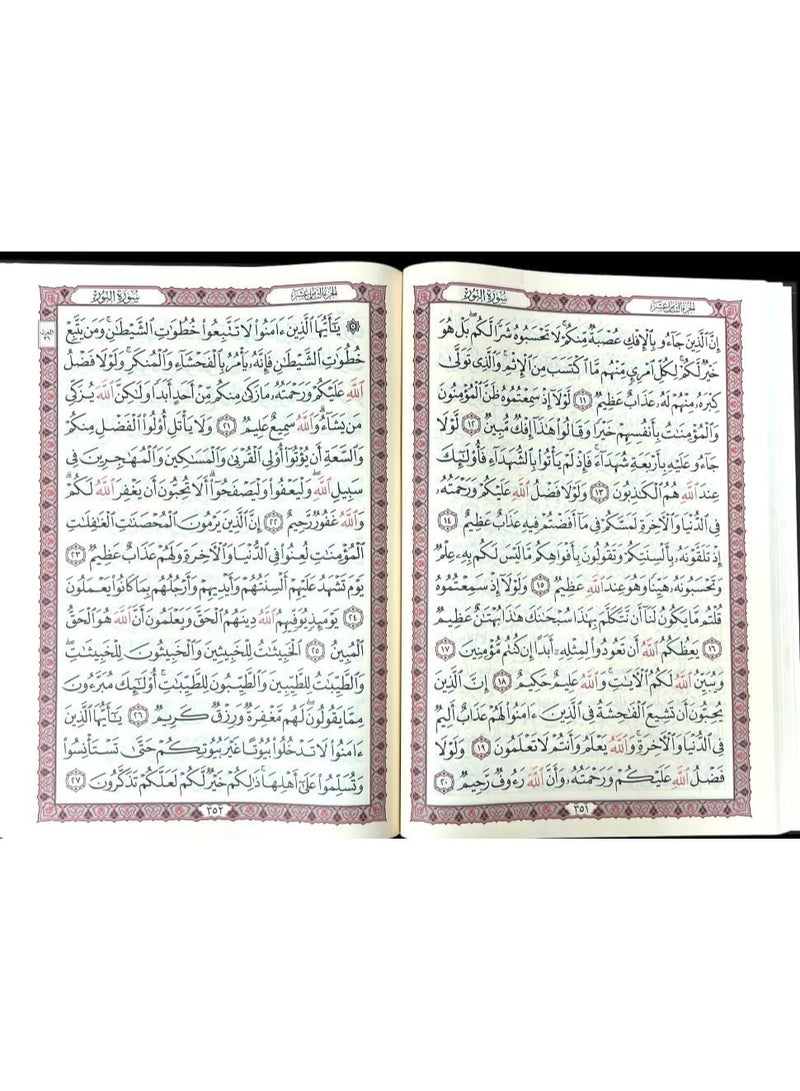 الجزء الثامن عشر
سورة النور
إِنَّ ٱلَّذِينَ جَآءُو بِٱلْإِفْكِ عُصْبَةٌ مِّنكُمْ ۚ لَا تَحْسَبُوهُ شَرًّا لَّكُم ۖ بَلْ هُوَ
خَيْرٌ لَّكُمْ ۚ لِكُلِّ ٱمْرِئٍ مِّنْهُم مَّا ٱكْتَسَبَ مِنَ ٱلْإِثْمِ ۚ وَٱلَّذِى تَوَلَّىٰ
كِبْرَهُۥ مِنْهُمْ لَهُۥ عَذَابٌ عَظِيمٌ ١١ لَّوْلَآ إِذْ سَمِعْتُمُوهُ ظَنَّ ٱلْمُؤْمِنُونَ
وَٱلْمُؤْمِنَٰتُ بِأَنفُسِهِمْ خَيْرًا وَقَالُوا۟ هَٰذَآ إِفْكٌ مُّبِينٌ ١٢ لَّوْلَا
جَآءُو عَلَيْهِ بِأَرْبَعَةِ شُهَدَآءَ ۚ فَإِذْ لَمْ يَأْتُوا۟ بِٱلشُّهَدَآءِ فَأُو۟لَٰٓئِكَ
عِندَ ٱللَّهِ هُمُ ٱلْكَٰذِبُونَ ١٣ وَلَوْلَا فَضْلُ ٱللَّهِ عَلَيْكُمْ وَرَحْمَتُهُۥ
فِى ٱلدُّنْيَا وَٱلْءَاخِرَةِ لَمَسَّكُمْ فِى مَآ أَفَضْتُمْ فِيهِ عَذَابٌ عَظِيمٌ ١٤
إِذْ تَلَقَّوْنَهُۥ بِأَلْسِنَتِكُمْ وَتَقُولُونَ بِأَفْوَاهِكُم مَّا لَيْسَ لَكُم بِهِۦ عِلْمٌ
وَتَحْسَبُونَهُۥ هَيِّنًا وَهُوَ عِندَ ٱللَّهِ عَظِيمٌ ١٥ وَلَوْلَآ إِذْ سَمِعْتُمُوهُ
قُلْتُم مَّا يَكُونُ لَنَآ أَن نَّتَكَلَّمَ بِهَٰذَا سُبْحَٰنَكَ هَٰذَا بُهْتَٰنٌ عَظِيمٌ
١٦ يَعِظُكُمُ ٱللَّهُ أَن تَعُودُوا۟ لِمِثْلِهِۦٓ أَبَدًا إِن كُنتُم مُّؤْمِنِينَ ١٧
وَيُبَيِّنُ ٱللَّهُ لَكُمُ ٱلْءَايَٰتِ ۚ وَٱللَّهُ عَلِيمٌ حَكِيمٌ ١٨ إِنَّ ٱلَّذِينَ
يُحِبُّونَ أَن تَشِيعَ ٱلْفَٰحِشَةُ فِى ٱلَّذِينَ ءَامَنُوا۟ لَهُمْ عَذَابٌ أَلِيمٌ
فِى ٱلدُّنْيَا وَٱلْءَاخِرَةِ ۚ وَٱللَّهُ يَعْلَمُ وَأَنتُمْ لَا تَعْلَمُونَ ١٩ وَلَوْلَا
فَضْلُ ٱللَّهِ عَلَيْكُمْ وَرَحْمَتُهُۥ وَأَنَّ ٱللَّهَ رَءُوفٌ رَّحِيمٌ ٢٠
٣٥١
الجزء الثامن عشر
سورة النور
۞ يَٰٓأَيُّهَا ٱلَّذِينَ ءَامَنُوا۟ لَا تَتَّبِعُوا۟ خُطُوَٰتِ ٱلشَّيْطَٰنِ ۚ وَمَن يَتَّبِعْ
خُطُوَٰتِ ٱلشَّيْطَٰنِ فَإِنَّهُۥ يَأْمُرُ بِٱلْفَحْشَآءِ وَٱلْمُنكَرِ ۚ وَلَوْلَا فَضْلُ
ٱللَّهِ عَلَيْكُمْ وَرَحْمَتُهُۥ مَا زَكَىٰ مِنكُم مِّنْ أَحَدٍ أَبَدًا وَلَٰكِنَّ ٱللَّهَ يُزَكِّى
مَن يَشَآءُ ۗ وَٱللَّهُ سَمِيعٌ عَلِيمٌ ٢١ وَلَا يَأْتَلِ أُو۟لُوا۟ ٱلْفَضْلِ مِنكُمْ
وَٱلسَّعَةِ أَن يُؤْتُوٓا۟ أُو۟لِى ٱلْقُرْبَىٰ وَٱلْمَسَٰكِينَ وَٱلْمُهَٰجِرِينَ فِى
سَبِيلِ ٱللَّهِ ۖ وَلْيَعْفُوا۟ وَلْيَصْفَحُوٓا۟ ۗ أَلَا تُحِبُّونَ أَن يَغْفِرَ ٱللَّهُ لَكُمْ ۗ
وَٱللَّهُ غَفُورٌ رَّحِيمٌ ٢٢ إِنَّ ٱلَّذِينَ يَرْمُونَ ٱلْمُحْصَنَٰتِ ٱلْغَٰفِلَٰتِ
ٱلْمُؤْمِنَٰتِ لُعِنُوا۟ فِى ٱلدُّنْيَا وَٱلْءَاخِرَةِ وَلَهُمْ عَذَابٌ عَظِيمٌ ٢٣
يَوْمَ تَشْهَدُ عَلَيْهِمْ أَلْسِنَتُهُمْ وَأَيْدِيهِمْ وَأَرْجُلُهُم بِمَا كَانُوا۟ يَعْمَلُونَ
٢٤ يَوْمَئِذٍ يُوَفِّيهِمُ ٱللَّهُ دِينَهُمُ ٱلْحَقَّ وَيَعْلَمُونَ أَنَّ ٱللَّهَ هُوَ ٱلْحَقُّ
ٱلْمُبِينُ ٢٥ ٱلْخَبِيثَٰتُ لِلْخَبِيثِينَ وَٱلْخَبِيثُونَ لِلْخَبِيثَٰتِ ۖ
وَٱلطَّيِّبَٰتُ لِلطَّيِّبِينَ وَٱلطَّيِّبُونَ لِلطَّيِّبَٰتِ ۚ أُو۟لَٰٓئِكَ مُبَرَّءُونَ
مِمَّا يَقُولُونَ ۖ لَهُم مَّغْفِرَةٌ وَرِزْقٌ كَرِيمٌ ٢٦ يَٰٓأَيُّهَا ٱلَّذِينَ
ءَامَنُوا۟ لَا تَدْخُلُوا۟ بُيُوتًا غَيْرَ بُيُوتِكُمْ حَتَّىٰ تَسْتَأْنِسُوا۟
وَتُسَلِّمُوا۟ عَلَىٰٓ أَهْلِهَا ۚ ذَٰلِكُمْ خَيْرٌ لَّكُمْ لَعَلَّكُمْ تَذَكَّرُونَ ٢٧
٣٥٢
الحزب
٣٦